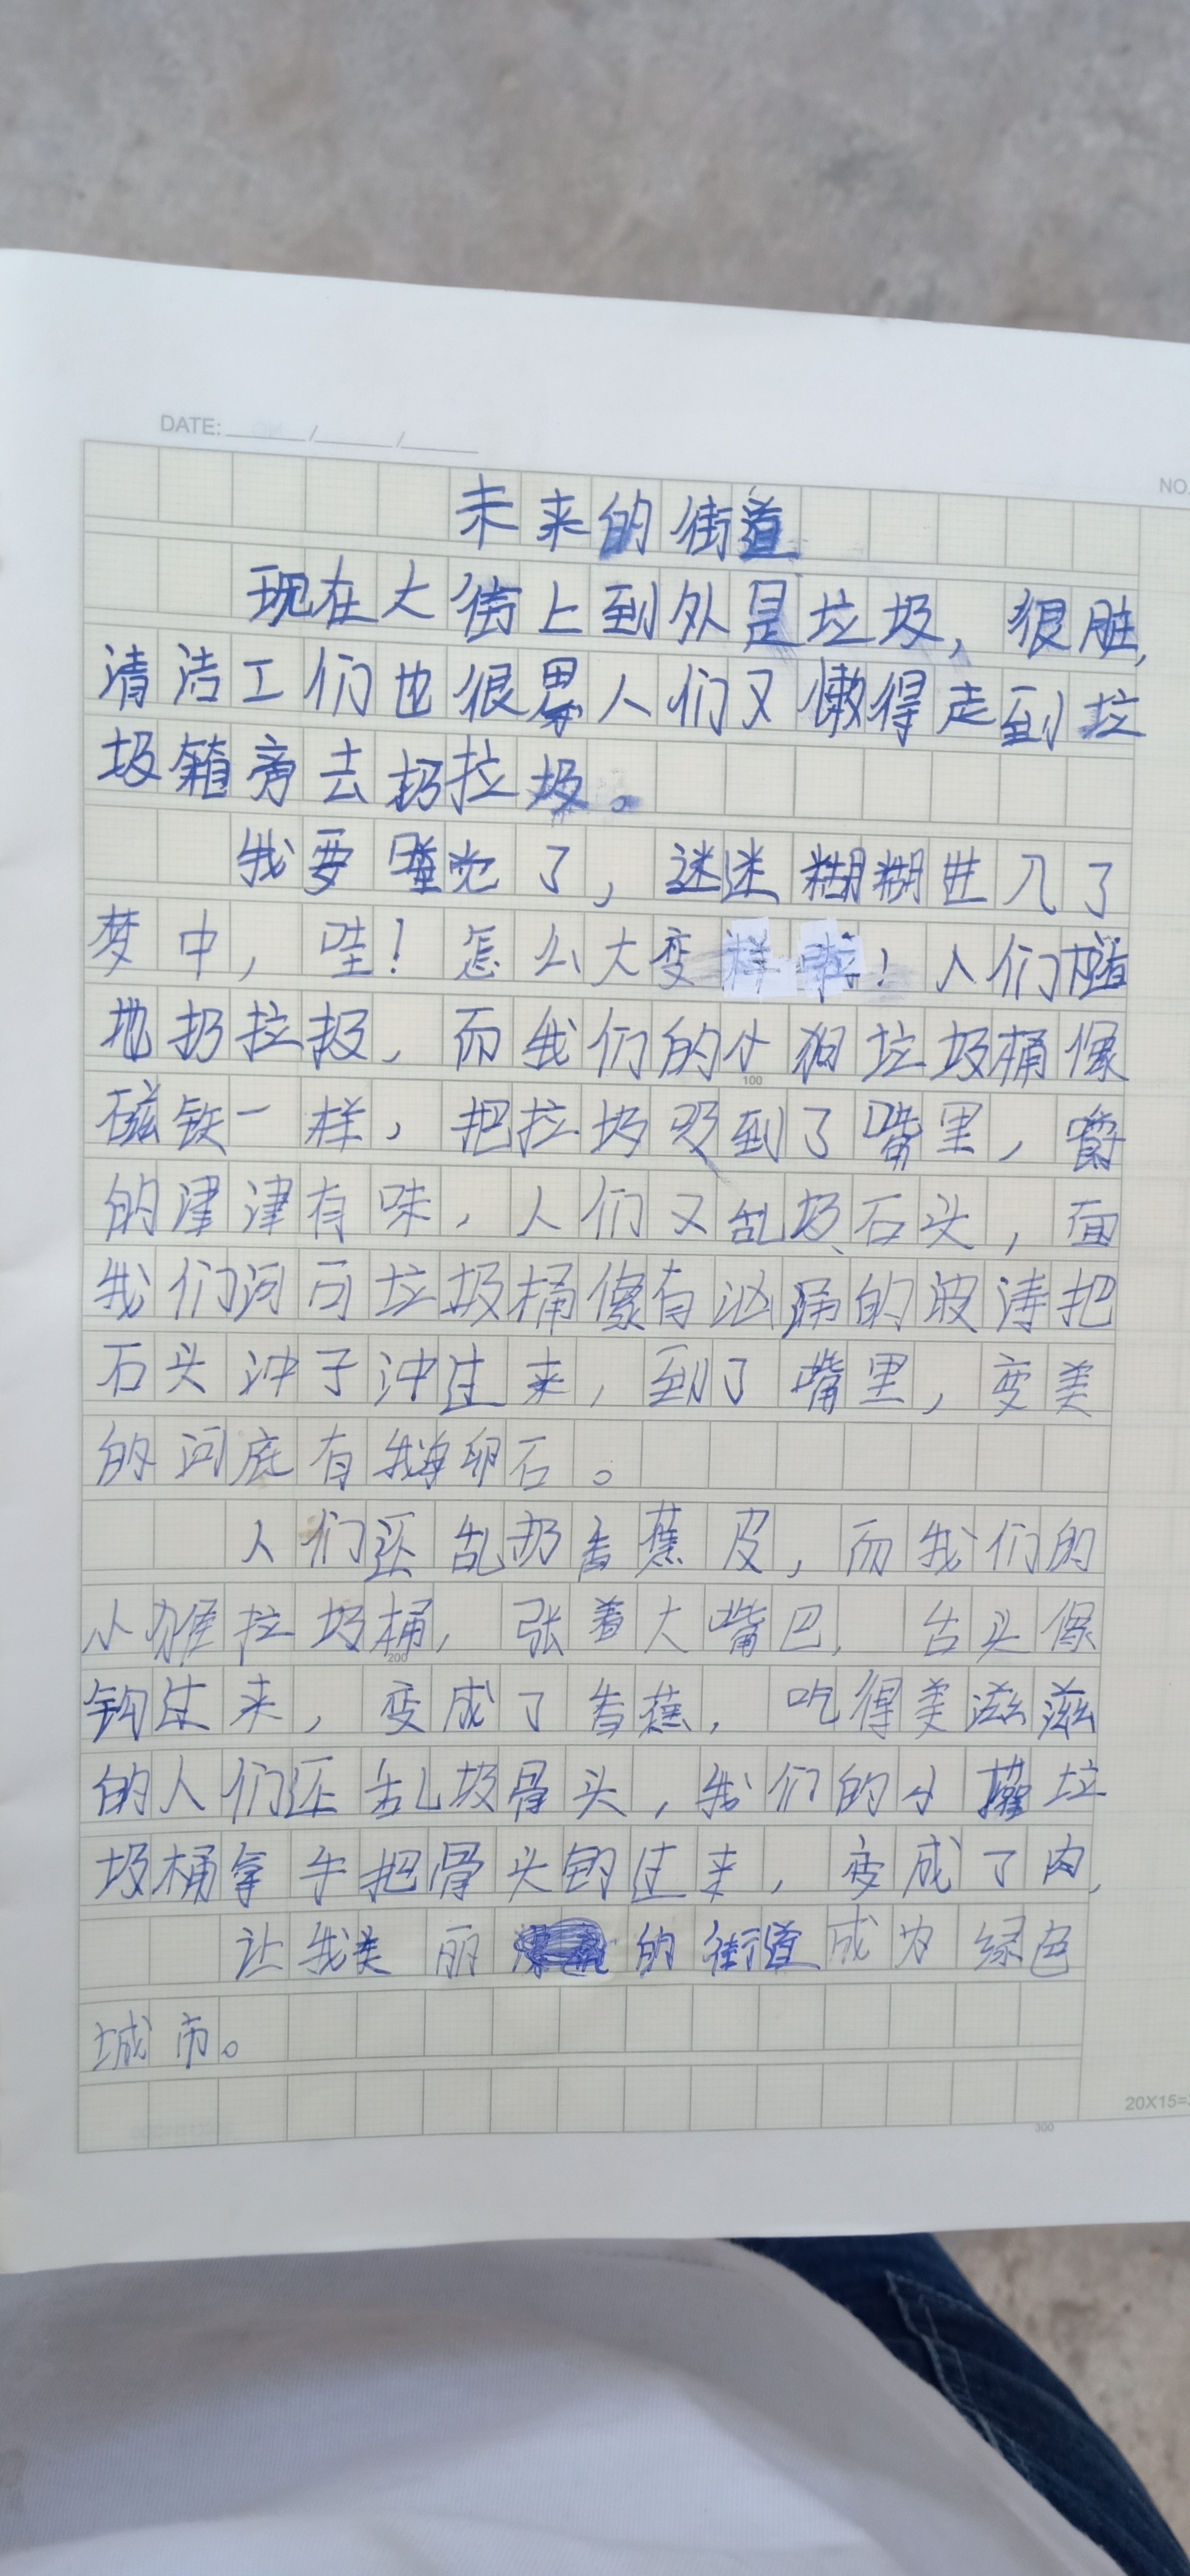 DATE: / /
NO.
未来的街道
现在大街上到外是垃圾，很脏，
清洁工们也很累人们又懒得走到垃
圾箱旁去扔拉圾。
我要睡觉了，迷迷糊糊进入了
梦中，哇！怎么大变样啦！人们
地扔拉圾，而我们的小狗垃圾桶像
磁铁一样，把拉圾吸到了嘴里，嚼
的津津有味，人们又乱圾石头，面
我们河可垃圾桶像有汹涌的波涛把
石头冲子冲过来，到了嘴里，变美
的河底有鹅卵石。
人们还乱扔香蕉皮，而我们的
小猴拉圾桶，张着大嘴巴，台头像
钩过来，变成了香蕉，吃得美滋滋
的人们还乱圾骨头，我们的小垃
圾桶拿手把骨头钩过来，变成了肉，
让我美丽的街道成为绿色
城市。
100
200
300
20X15=